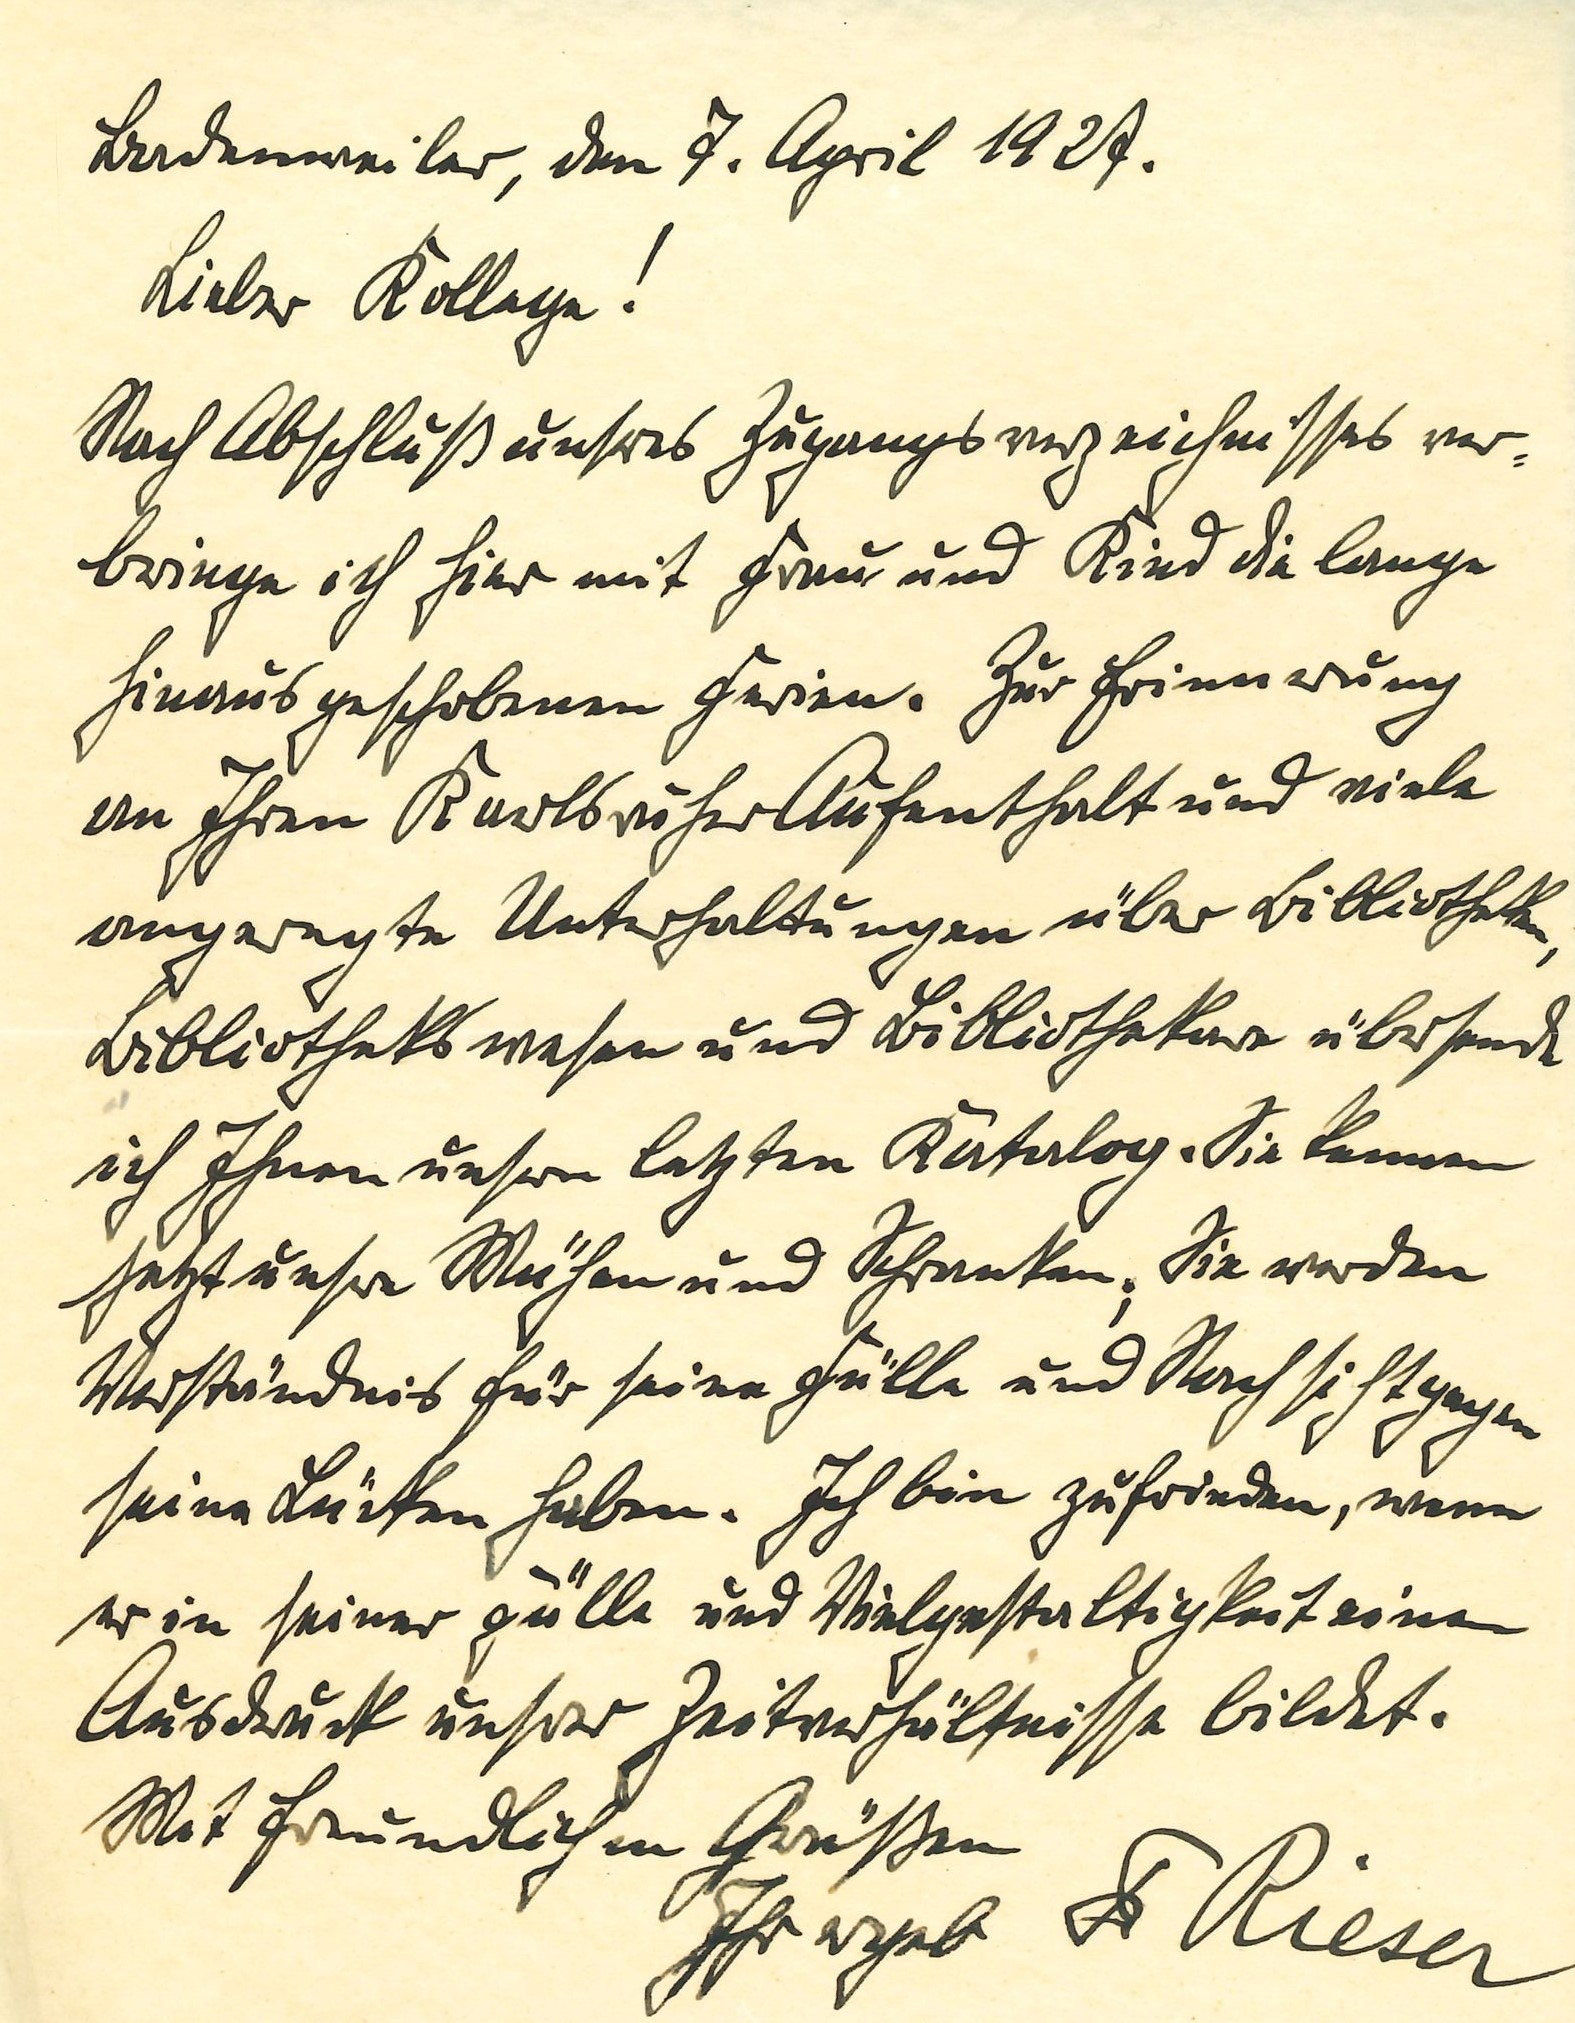 Badenweiler, den 7. April 1927.
Lieber Kollege!
Nach Abschluß unsres Zugangsverzeichnisses ver-
bringe ich hier mit Frau und Kind die lange
hinausgeschobenen Ferien. Zur Erinnerung
an Ihren Karlsruher Aufenthalt und viele
angeregte Unterhaltungen über Bibliotheken,
Bibliothekswesen und Bibliothekare übersende
ich Ihnen unsern letzten Katalog. Sie kennen
jetzt unsre Mühen und Schranken; Sie werden
Verständnis für seine Fülle und Nachsicht gegen
seine Lücken haben. Ich bin zufrieden, wenn
er in seiner Fülle und Vielgestaltigkeit einen
Ausdruck unsrer Zeitverhältnisse bildet.
Mit freundlichen Grüßen
Ihr ergeb F Rieser